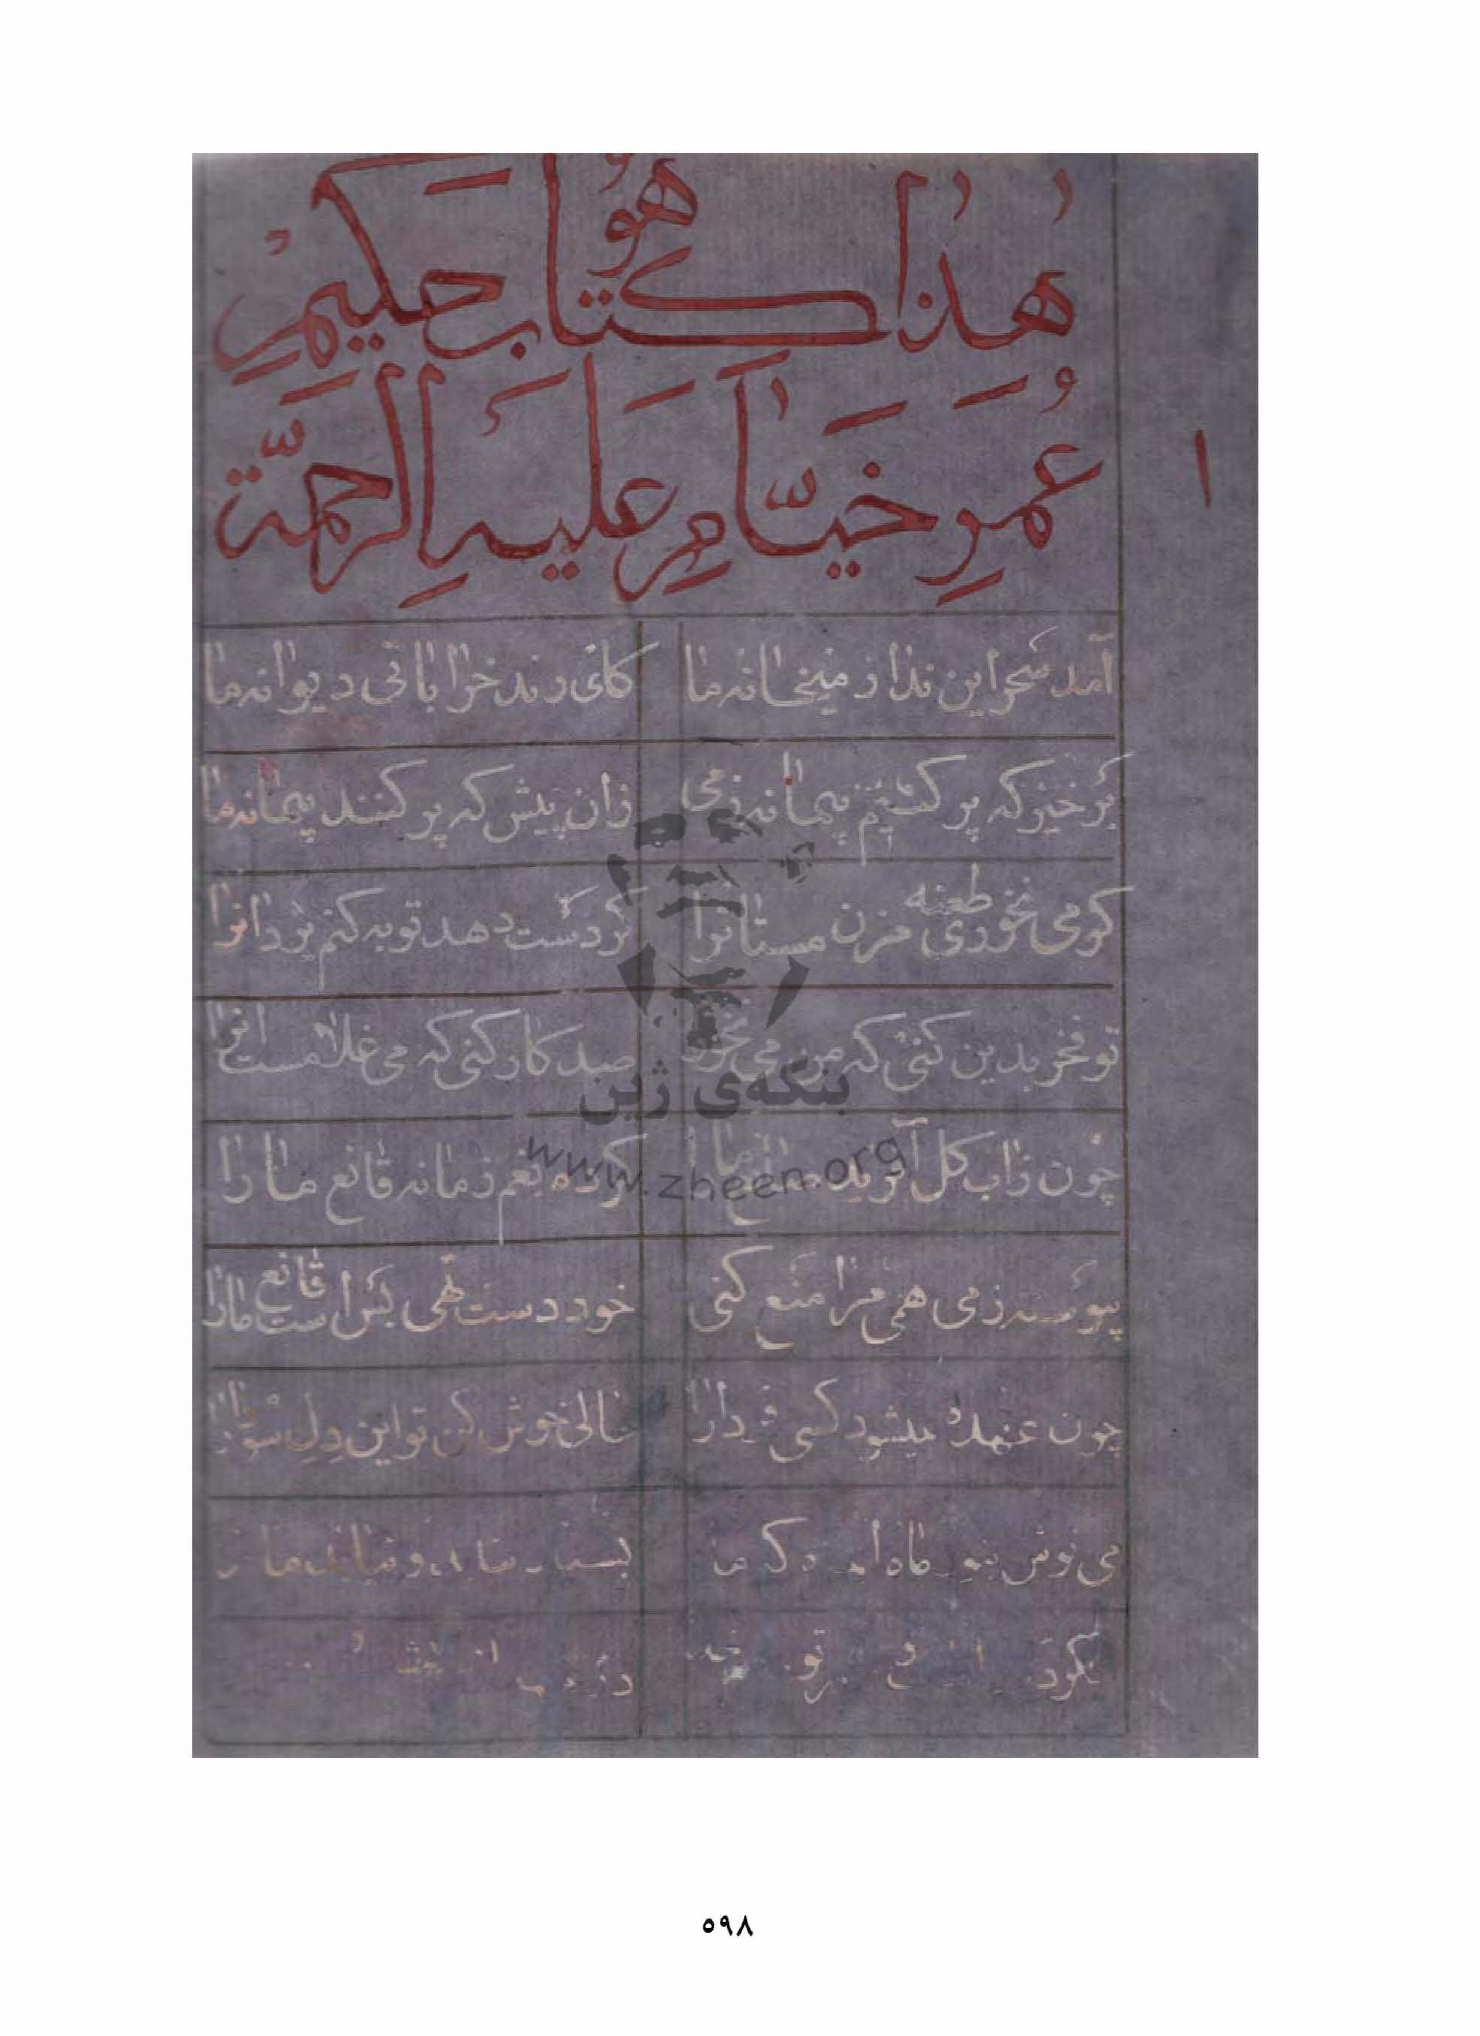 هو
هٰذا كتاب حَكيمِ
عُمَرِ خَيّامِ عَلَيهِ الرحمّة
۱
آمد سحر این ندا ز میخانه ما کای رند خراباتی دیوانه ما
برخیز که پر کنیم پیمانه ز می زان پیش که پر کنند پیمانه ما
کر می نخوری طعنه مزن مستانرا کر دست دهد توبه کنم یزدانرا
تو فخر بدین کنی که من می نخورم صد کار کنی که می غلامست انرا
چون زاب کل آفرید صانع ما را کرده بغم زمانه قانع ما را
پیوسته ز می همی مرا منع کنی خود دست تهی بس است قانع ما را
چون عهده میشود کسی فردارا حالی خوش کن تو این دلِ سودا را
می نوش بنور ماه ای که ما بسیار بتابد و نیابد ما را
بنکەی ژین
www.zheen.org
٥٩٨